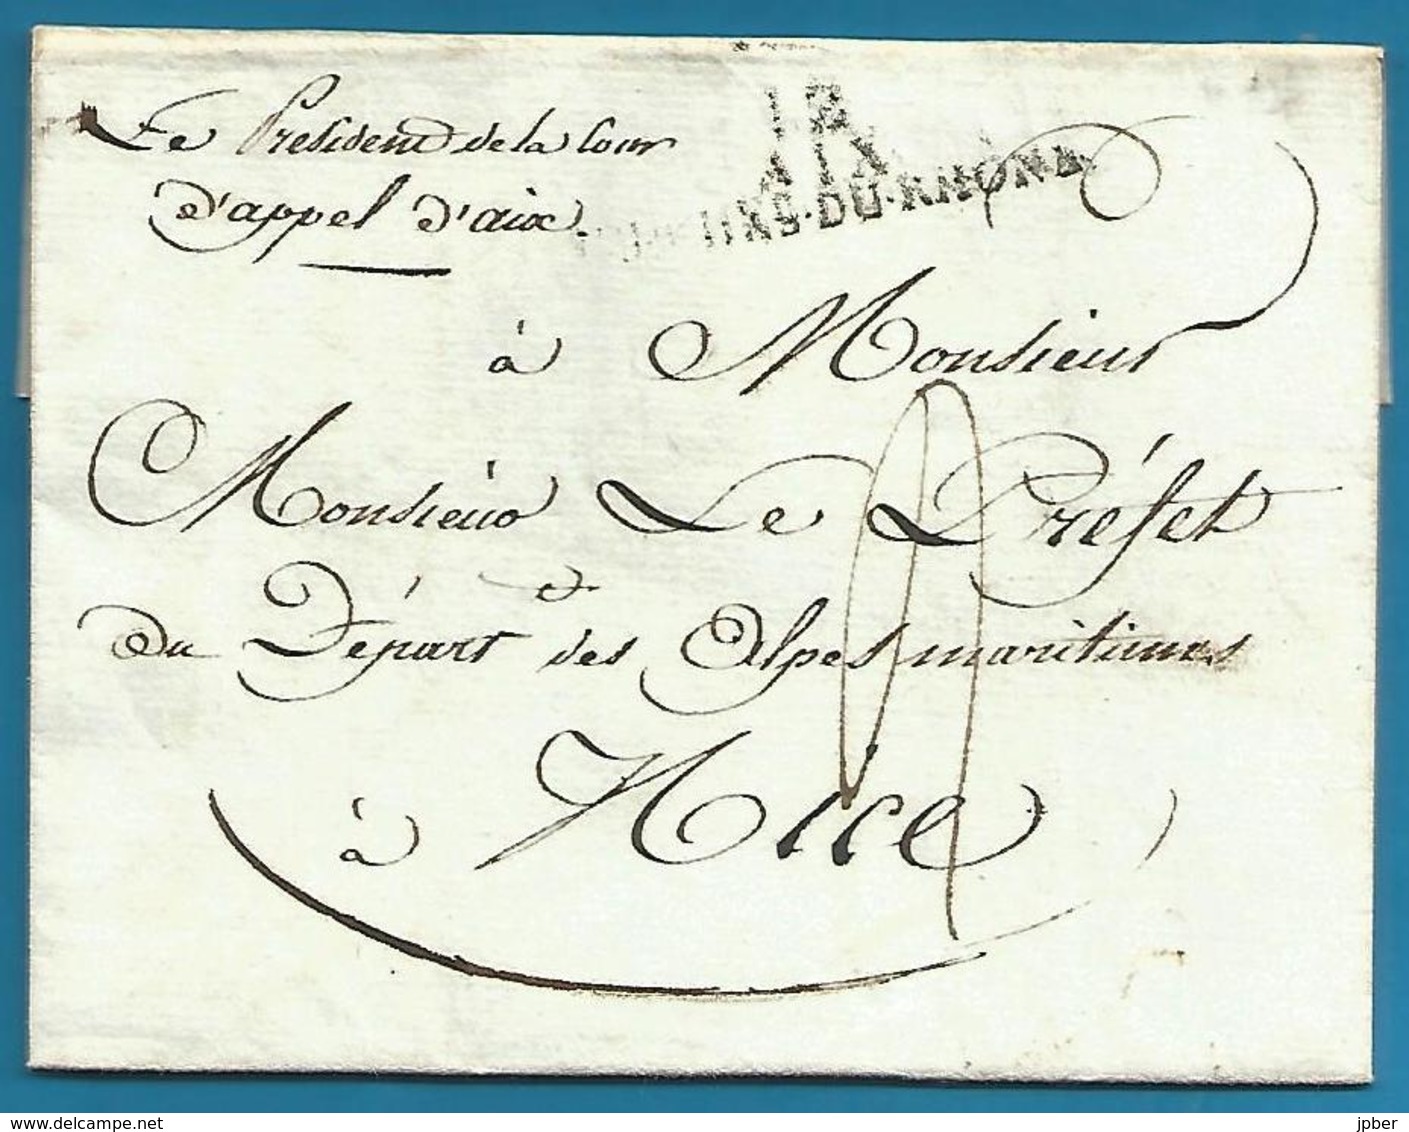 Le President de la Cour
d'appel d'aix.
AIX
DU·RHÔNE
à Monsieur
Monsieur Le Préfet
Du Départ.t des Alpes maritimes
à Nice
www.delcampe.net
jpber